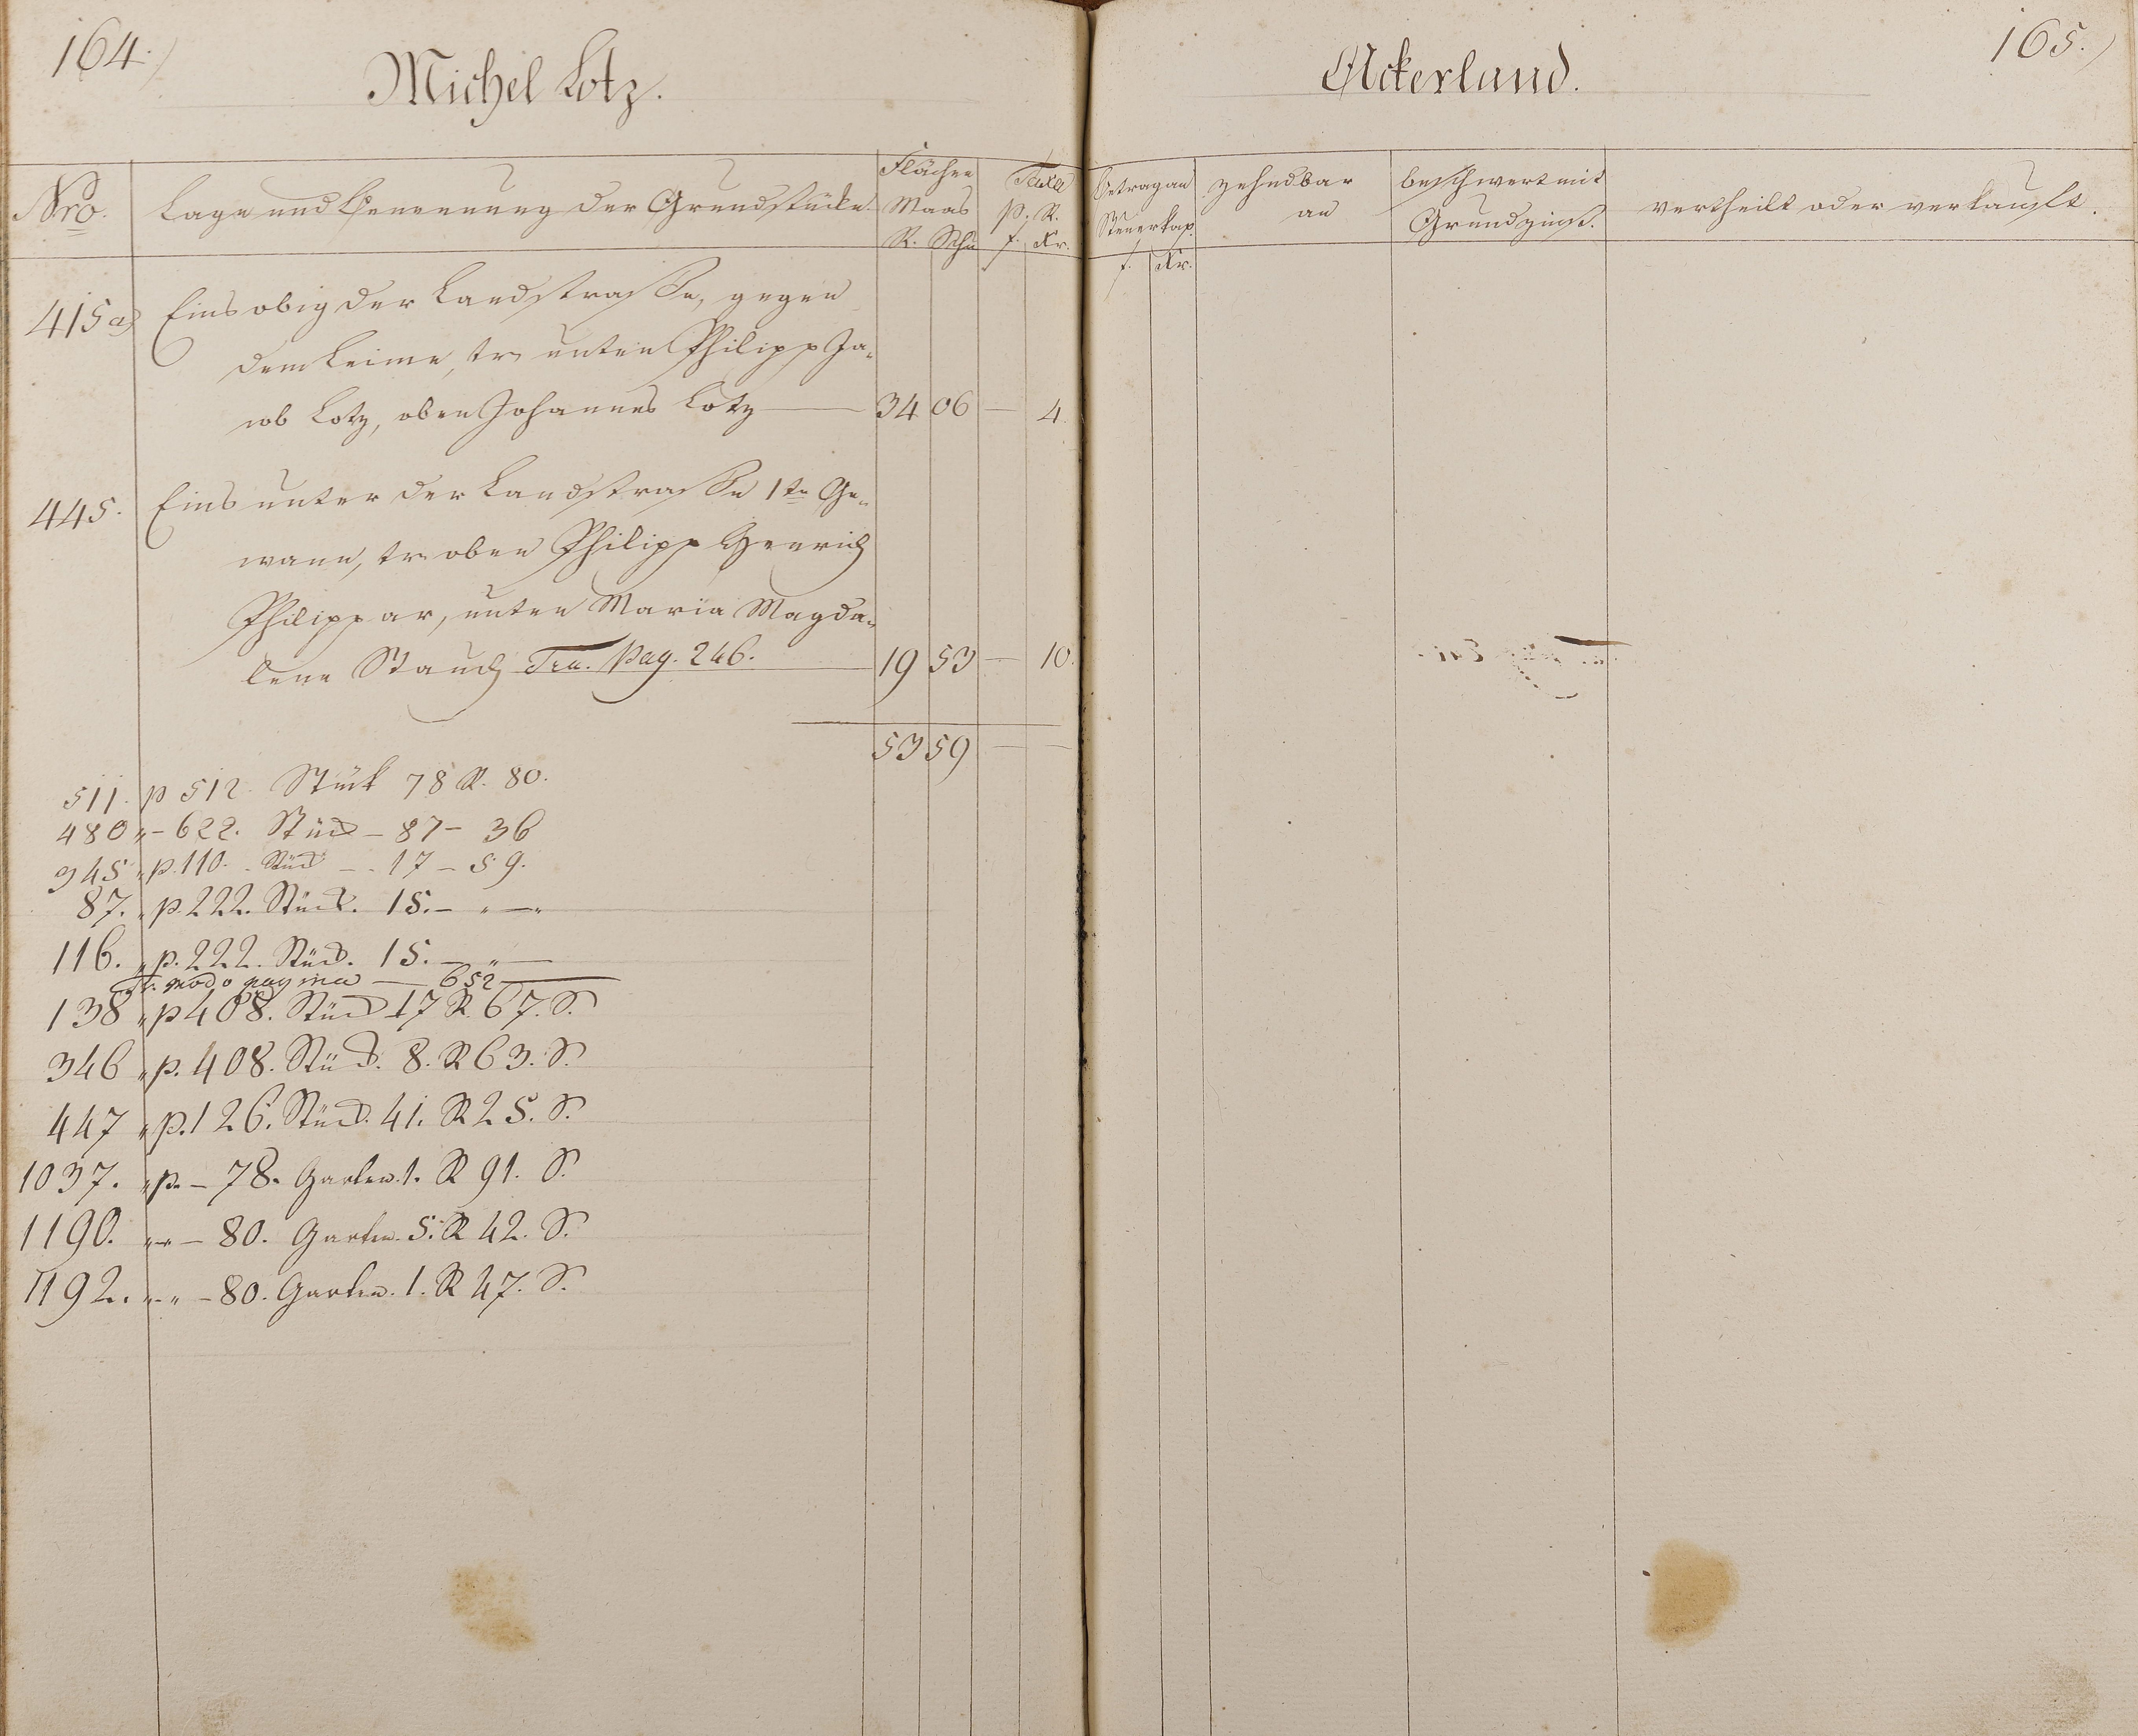 164.)
Michel Lotz.
Nro.
Lage und Benennung der Grundstücke.
Flächen
Maas
R. Schu
Taxa
p. R.
f. Kr.
415 a)
Eins obig der Landstrasse, gegen
dem Leime, tr. unten Philipp Ja-
cob Lotz, oben Johannes Lotz — 34 06 — 4.
445.
Eins unter der Landstrasse 1te Ge-
wann, tr. oben Philipp Henrich
Philippar, unten Maria Magda-
lena Stauch Tra. Pag. 246. — 19 53 — 10.
53 59 — —
511. p 512. Stück 78 R. 80.
480 " - 622. Stück - 87 - 36
345 " p. 110. Stück - 17 - 59.
87. " p. 222. Stück. 15. - " -
116. " p. 222. Stück. 15. - " -
modo pagina — 652
138 " p 408. Stück 17 R. 67. S.
346 " p. 408. Stück. 8. R 63. S.
447 " p. 126. Stück. 41. R 25. S.
1037. " p. - 78. Garten. 1. R 91. S.
1190. " - " - 80. Garten. 5. R 42. S.
1192. " - " - 80. Garten. 1. R 47. S.
165.)
Ackerland.
Betrag an
Steuerkap.
f. Kr.
zehndbar
an
beschwert mit
Grundzinß.
vertheilt oder verkauft.